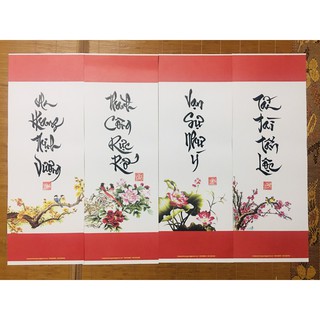 An
Khang
Thịnh
Vượng
Thành
Công
Rực
Rỡ
Vạn
Sự
Như
Ý
Tấn
Tài
Tấn
Lộc